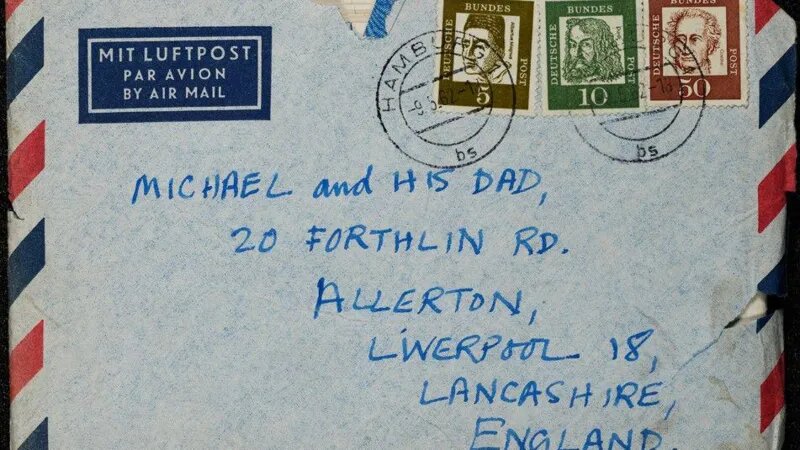 MIT LUFTPOST
PAR AVION
BY AIR MAIL
DEUTSCHE BUNDES POST
5
DEUTSCHE BUNDES POST
10
DEUTSCHE BUNDES POST
50
HAMBU
-9.5.62-1
bs
bs
MICHAEL and HIS DAD,
20 FORTHLIN RD.
ALLERTON,
LIVERPOOL 18,
LANCASHIRE,
ENGLAND.